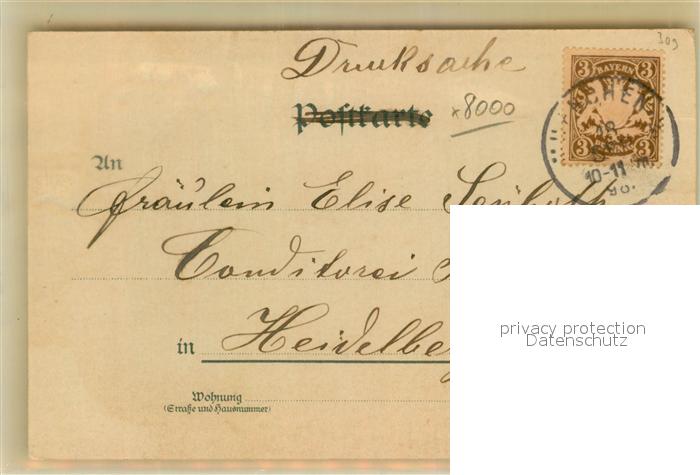 309
Drucksache
Postkarte
x8000
3 BAYERN 3
3 3
CHEN
10-11
98.
An
Fräulein Elise
Conditorei
in Heidelberg
Wohnung
(Straße und Hausnummer)
privacy protection
Datenschutz